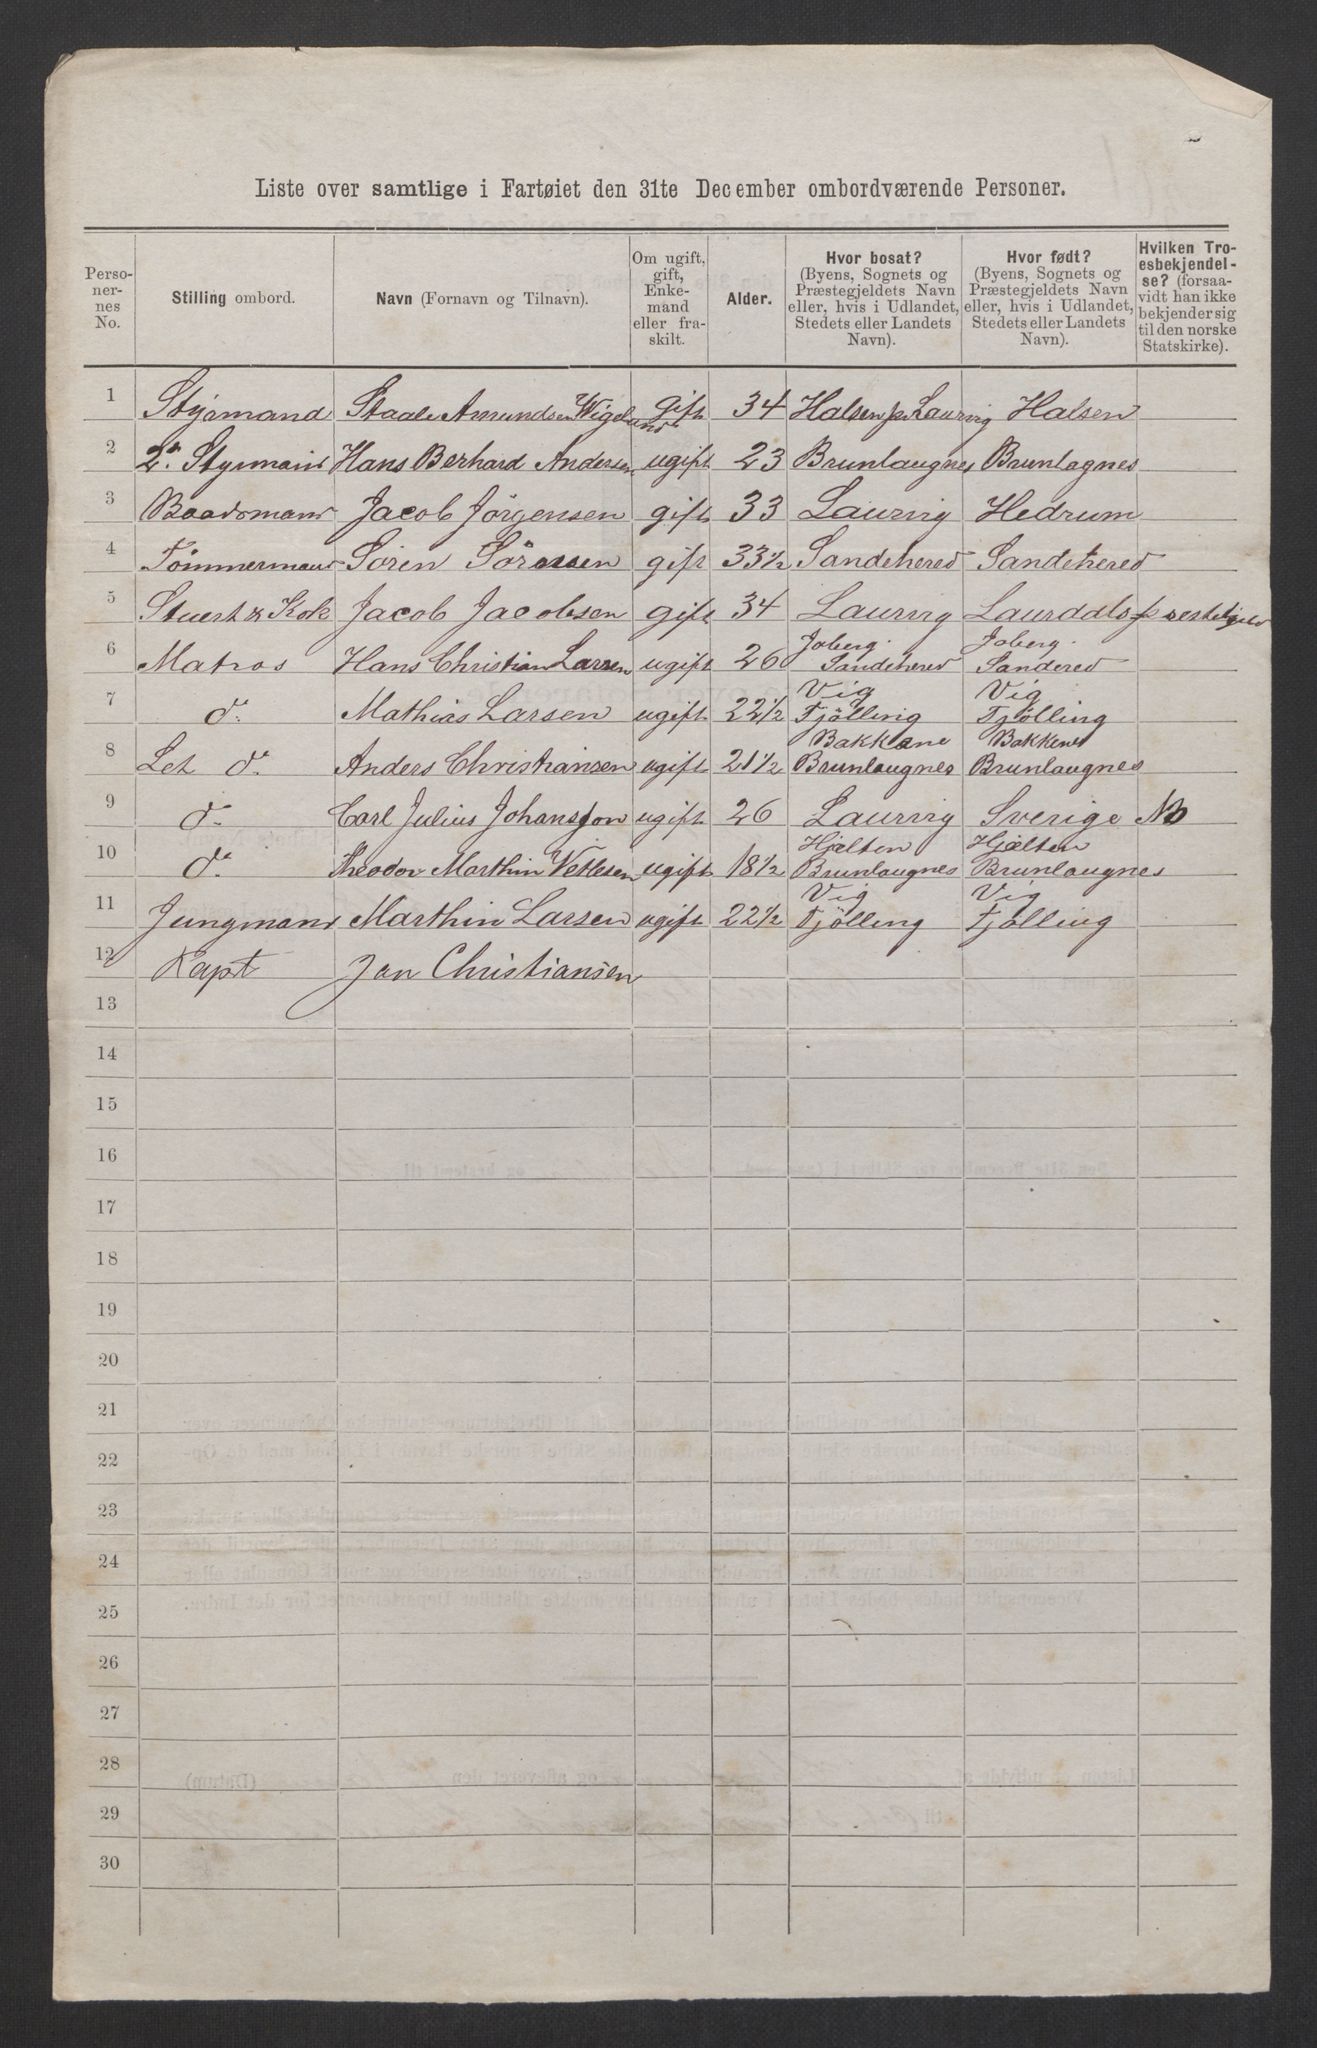 Liste over samtlige i Fartøiet den 31te December ombordværende Personer.
Personernes No. | Stilling ombord. | Navn (Fornavn og Tilnavn). | Om ugift, gift, Enkemand eller fraskilt. | Alder. | Hvor bosat? (Byens, Sognets og Præstegjeldets Navn eller, hvis i Udlandet, Stedets eller Landets Navn). | Hvor født? (Byens, Sognets og Præstegjeldets Navn eller, hvis i Udlandet, Stedets eller Landets Navn). | Hvilken Troesbekjendelse? (forsaavidt han ikke bekjender sig til den norske Statskirke).
1 Styrmand Staale Amundsen Wigelund gift 34 Halsen pr Laurvig Halsen
2 2n. Styrmand Hans Berhard Andersen ugift 23 Brunlaugnes Brunlagnes
3 Baadsmand Jacob Jörgensen gift 33 Laurvig Hedrum
4 Tömmermand Sören Sörensen gift 33½ Sandehered Sandeherred
5 Stuert & Kok Jacob Jacobsen gift 34 Laurvig Laurdals prestegield
6 Matros Hans Christian Larsen ugift 26 Joberg Sandeherred Joberg Sandered
7 do. Mathias Larsen ugift 22½ Vig Tjölling Vig Tjölling
8 Let do. Anders Christiansen ugift 21½ Bakkane Brunlaugnes Bakkene Brunlaugnes
9 do. Carl Julius Johansson ugift 26 Laurvig Sverige NB
10 do. Theodor Marthin Vetlesen ugift 18½ Hjelten Brunlaugnes Hjelten Brunlaugnes
11 Jungmand Marthin Larsen ugift 22½ Vig Tjölling Vig Tjölling
12 Kapt Jan Christiansen
13
14
15
16
17
18
19
20
21
22
23
24
25
26
27
28
29
30